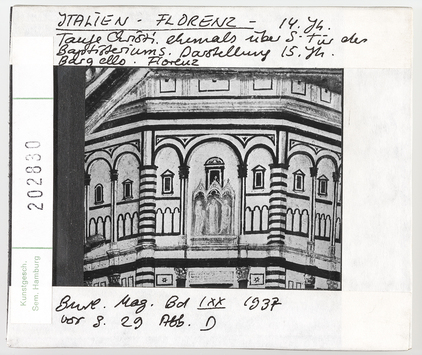 ITALIEN - FLORENZ - 14. Jh.
Taufe Christi. ehemals über S-Tür des
Baptisteriums. Darstellung 15. Jh.
Bargello. Florenz
202830
Kunstgesch.
Sem. Hamburg
Burl. Mag. Bd LXX 1937
vor S. 29 Abb. D